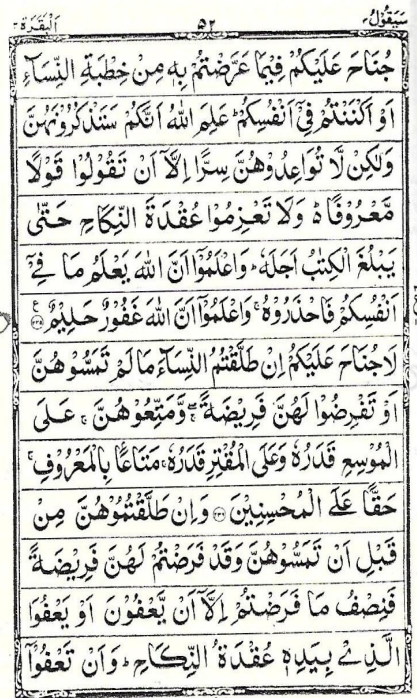 سَيَقُوْلُ ٥٢ اَلْبَقَرَة
جُنَاحَ عَلَيْكُمْ فِيْمَا عَرَّضْتُمْ بِهٖ مِنْ خِطْبَةِ النِّسَآءِ
اَوْ اَكْنَنْتُمْ فِيْٓ اَنْفُسِكُمْ ؕ عَلِمَ اللّٰهُ اَنَّكُمْ سَتَذْكُرُوْنَهُنَّ
وَلٰكِنْ لَّا تُوَاعِدُوْهُنَّ سِرًّا اِلَّآ اَنْ تَقُوْلُوْا قَوْلًا
مَّعْرُوْفًا ؕ وَلَا تَعْزِمُوْا عُقْدَةَ النِّكَاحِ حَتّٰى
يَبْلُغَ الْكِتٰبُ اَجَلَهٗ ؕ وَاعْلَمُوْٓا اَنَّ اللّٰهَ يَعْلَمُ مَا فِيْٓ
اَنْفُسِكُمْ فَاحْذَرُوْهُ ۚ وَاعْلَمُوْٓا اَنَّ اللّٰهَ غَفُوْرٌ حَلِيْمٌ ﴿٢٣٥﴾ ع
لَاجُنَاحَ عَلَيْكُمْ اِنْ طَلَّقْتُمُ النِّسَآءَ مَا لَمْ تَمَسُّوْهُنَّ
اَوْ تَفْرِضُوْا لَهُنَّ فَرِيْضَةً ۚۖ وَّمَتِّعُوْهُنَّ ۚ عَلَى
الْمُوْسِعِ قَدَرُهٗ وَعَلَى الْمُقْتِرِ قَدَرُهٗ ۚ مَتَاعًۢا بِالْمَعْرُوْفِ ۚ
حَقًّا عَلَى الْمُحْسِنِيْنَ ﴿٢٣٦﴾ وَاِنْ طَلَّقْتُمُوْهُنَّ مِنْ
قَبْلِ اَنْ تَمَسُّوْهُنَّ وَقَدْ فَرَضْتُمْ لَهُنَّ فَرِيْضَةً
فَنِصْفُ مَا فَرَضْتُمْ اِلَّآ اَنْ يَّعْفُوْنَ اَوْ يَعْفُوَا
الَّذِيْ بِيَدِهٖ عُقْدَةُ النِّكَاحِ ؕ وَاَنْ تَعْفُوْٓا